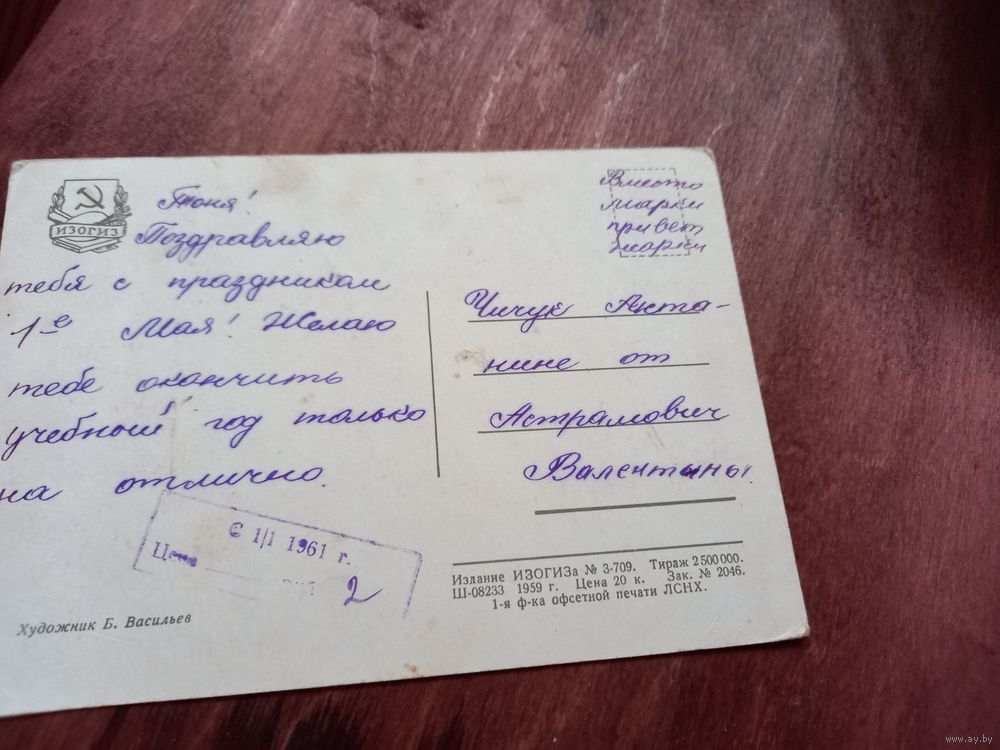 ИЗОГИЗ
Тоня!
Поздравляю
тебя с праздником
1-е Мая! Желаю
тебе окончить
учебный год только
на отлично.
С 1/1 1961 г.
Цена 2
Художник Б. Васильев
Вместо
марки
привет
жарки
Чичук Анта-
нине от
Астрамович
Валентины.
Издание ИЗОГИЗа № 3-709. Тираж 2 500 000.
Ш-08233 1959 г. Цена 20 к. Зак. № 2046.
1-я ф-ка офсетной печати ЛСНХ.
www.ay.by